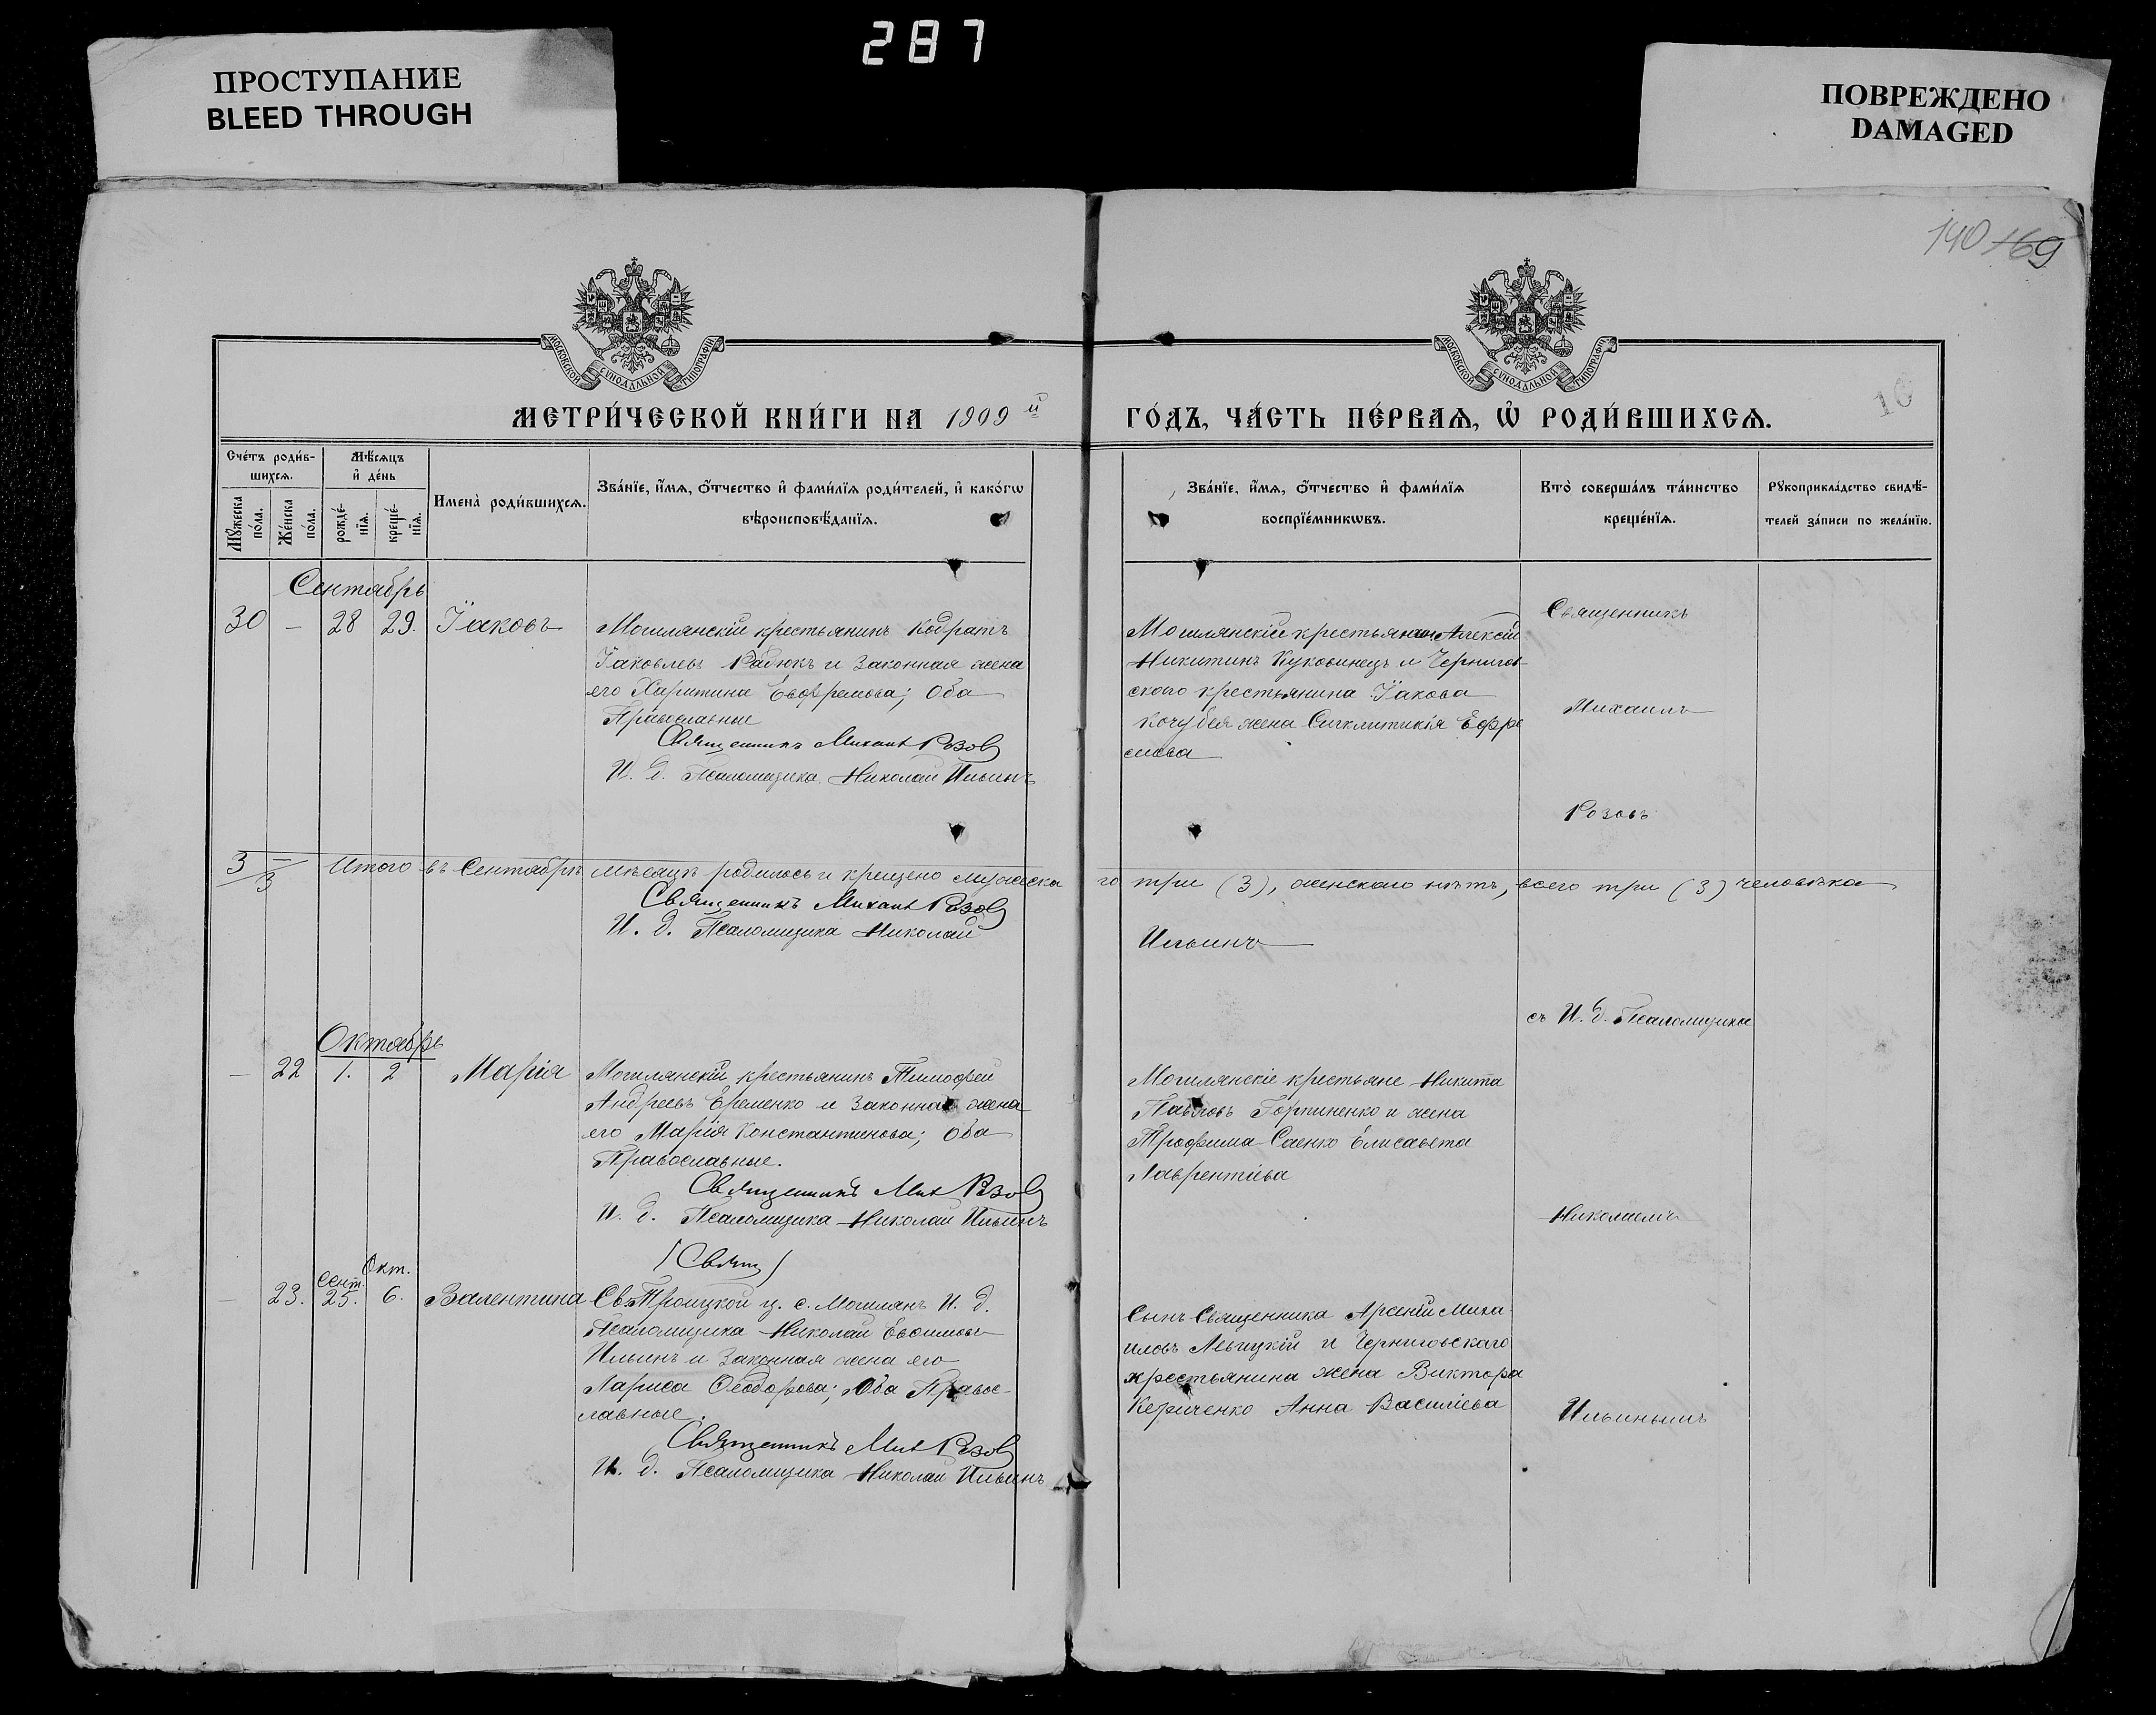 287
ПРОСТУПАНИЕ
BLEED THROUGH
ПОВРЕЖДЕНО
DAMAGED
140 169
МОСКОВСКОЙ СѴНОДАЛЬНОЙ ТИПОГРАФІИ
МОСКОВСКОЙ СѴНОДАЛЬНОЙ ТИПОГРАФІИ
МЕТРИ́ЧЕСКОЙ КНИ́ГИ НА 1909 й
ГО́ДЪ, ЧА́СТЬ ПЕ́РВАѦ, Ѡ҆ РОДИ́ВШИХСѦ.
Сче́тъ роди́в-
шихсѧ.
Мѣ́сѧцъ
и҆ де́нь
Мꙋ́жеска
по́ла.
Же́нска
по́ла.
рожде́-
нїѧ.
креще́-
нїѧ.
Имена̀ роди́вшихсѧ.
Зва́нїе, и҆́мѧ, ѻ҆́тчество и҆ фами́лїѧ роди́телей, и҆ како́гѡ
вѣроисповѣ́данїѧ.
Зва́нїе, и҆́мѧ, ѻ҆́тчество и҆ фами́лїѧ
воспрїе́мникѡвъ.
Кто̀ соверша́лъ та́инство
креще́нїѧ.
Рꙋкоприкла́дство свидѣ́-
телей за́писи по жела́нїю.
Сентябрь
30 — 28 29. Іаковъ
Могилянскій крестьянинъ Кодратъ
Іаковлевъ Рабюкъ и законная жена
его Харитина Евфремова; оба
Православные
Священникъ Михаил Розов
И. д. Псаломщика Николай Ильинъ
Могилянскій крестьянин Алексій
Никитинъ Куковинецъ и Чернигов-
скаго крестьянина Іакова
Кочубея жена Сигклитикія Ефре
мова
Священникъ
Михаилъ
Розовъ
3 — / 3 Итого въ Сентябрѣ мѣсяцѣ родилось и крещено мужеска
го три (3), женскаго нѣтъ, всего три (3) человѣка
Священникъ Михаил Розов
И. д. Псаломщика Николай
Ильинъ
съ И. д. Псаломщика
Октябрь
— 22 1. 2 Марія
Могилянскій крестьянинъ Тимофей
Андреевъ Еременко и законная жена
его Марія Константинова; оба
Православные.
Священникъ Мих Розов
И. д. Псаломщика Николай Ильинъ
Могилянскіе крестьяне Никита
Павловъ Горпиненко и жена
Трофима Саенко Елисавета
Лаврентіева
Николаемъ
(Свящ)
Сент. Окт.
— 23. 25. 6. Валентина
Св. Троицкой ц. с. Могилянъ И. д.
Псаломщика Николай Евфимовъ
Ильинъ и законная жена его
Лариса Ѳеодорова; Оба Правос-
лавные.
Священникъ Мих Розов
И. д. Псаломщика Николай Ильинъ
Сынъ Священника Арсеній Миха
иловъ Левицкій и Черниговскаго
крестьянина жена Виктора
Кериченко Анна Василіева
Ильинымъ